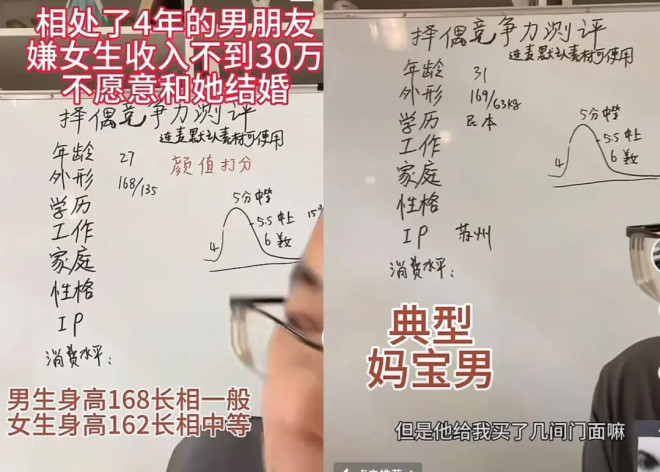 相处了4年的男朋友
嫌女生收入不到30万
不愿意和她结婚
择偶竞争力测评
连麦默认素材可使用
年龄 27
外形 168/135
学历
工作
家庭
性格
IP
消费水平：
颜值打分
5分中等
5.5中上
6美女
4
男生身高168长相一般
女生身高162长相中等
择偶竞争力测评
连麦默认素材可使用
年龄 31
外形 169/63kg
学历 民本
工作
家庭
性格
IP 苏州
消费水平：
5分中等
5.5中上
6美女
4
典型
妈宝男
但是他给我买了几间门面嘛